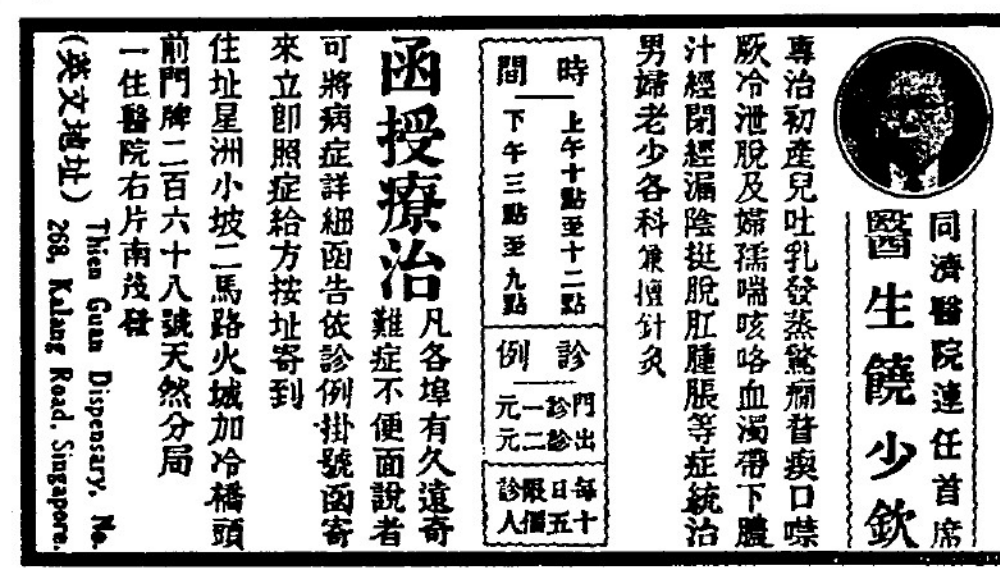 同濟醫院連任首席
醫生饒少欽
專治初產兒吐乳發蒸驚癇瞀瘈口噤
厥冷泄脫及婦孺喘咳咯血濁帶下膿
汁經閉經漏陰挺脫肛腫脹等症統治
男婦老少各科兼擅針灸
時間
上午十點至十二點
下午三點至九點
診例
門診一元
出診二元
每日限診
十五個人
函授療治
凡各埠有久遠奇
難症不便面說者
可將病症詳細函告依診例掛號函寄
來立即照症給方按址寄到
住址星洲小坡二馬路火城加冷橋頭
前門牌二百六十八號天然分局
一住醫院右片南茂發
(英文地址)
Thien Guan Dispensary. No.
268, Kalang Road. Singapore.